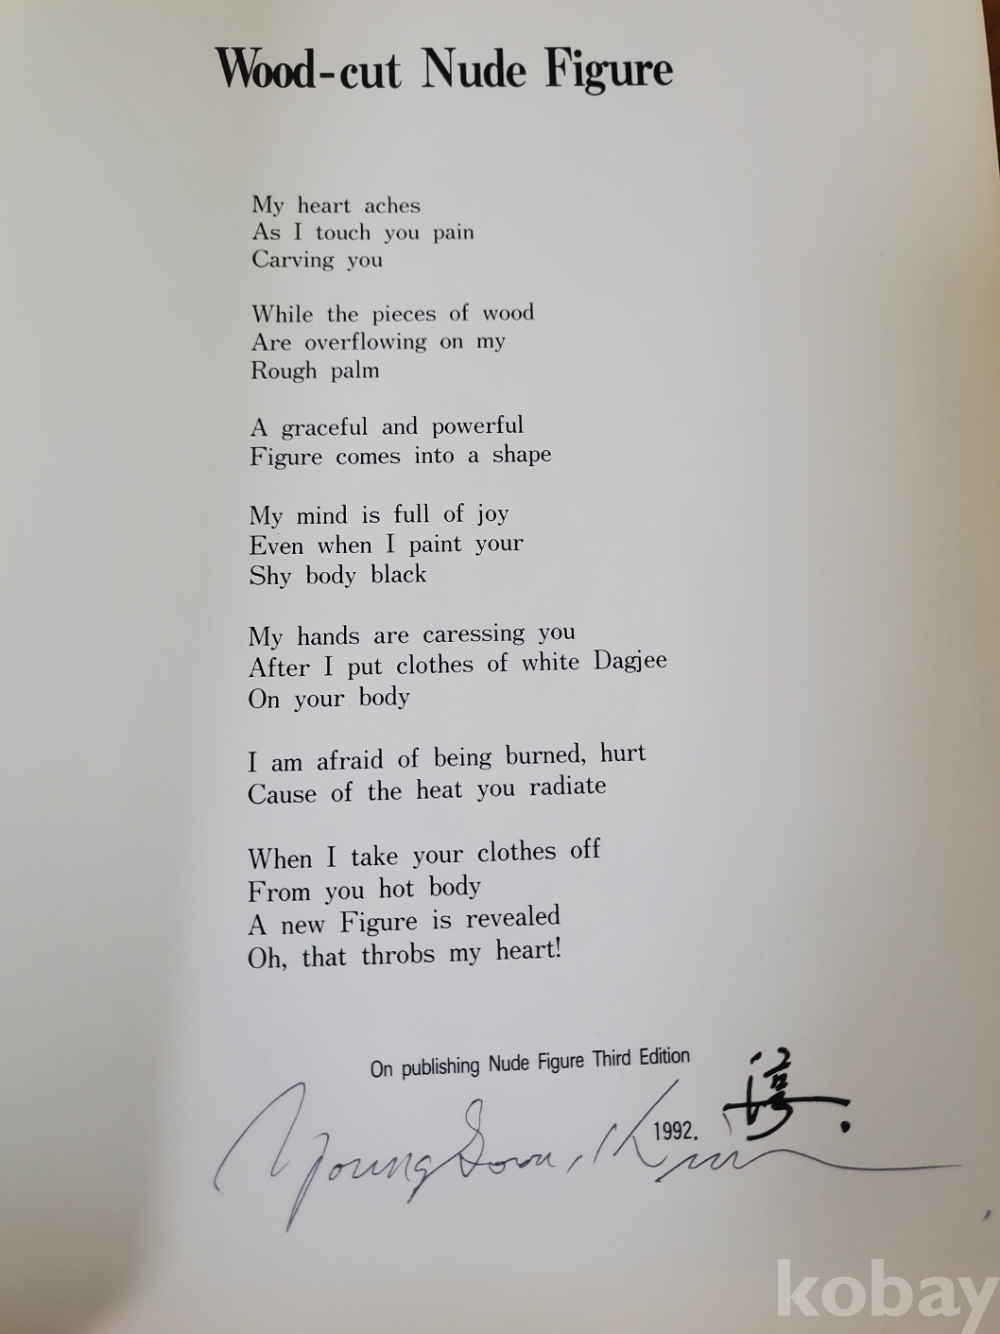 Wood-cut Nude Figure
My heart aches
As I touch you pain
Carving you
While the pieces of wood
Are overflowing on my
Rough palm
A graceful and powerful
Figure comes into a shape
My mind is full of joy
Even when I paint your
Shy body black
My hands are caressing you
After I put clothes of white Dagjee
On your body
I am afraid of being burned, hurt
Cause of the heat you radiate
When I take your clothes off
From you hot body
A new Figure is revealed
Oh, that throbs my heart!
On publishing Nude Figure Third Edition
1992.
Young Soon, Kim
kobay